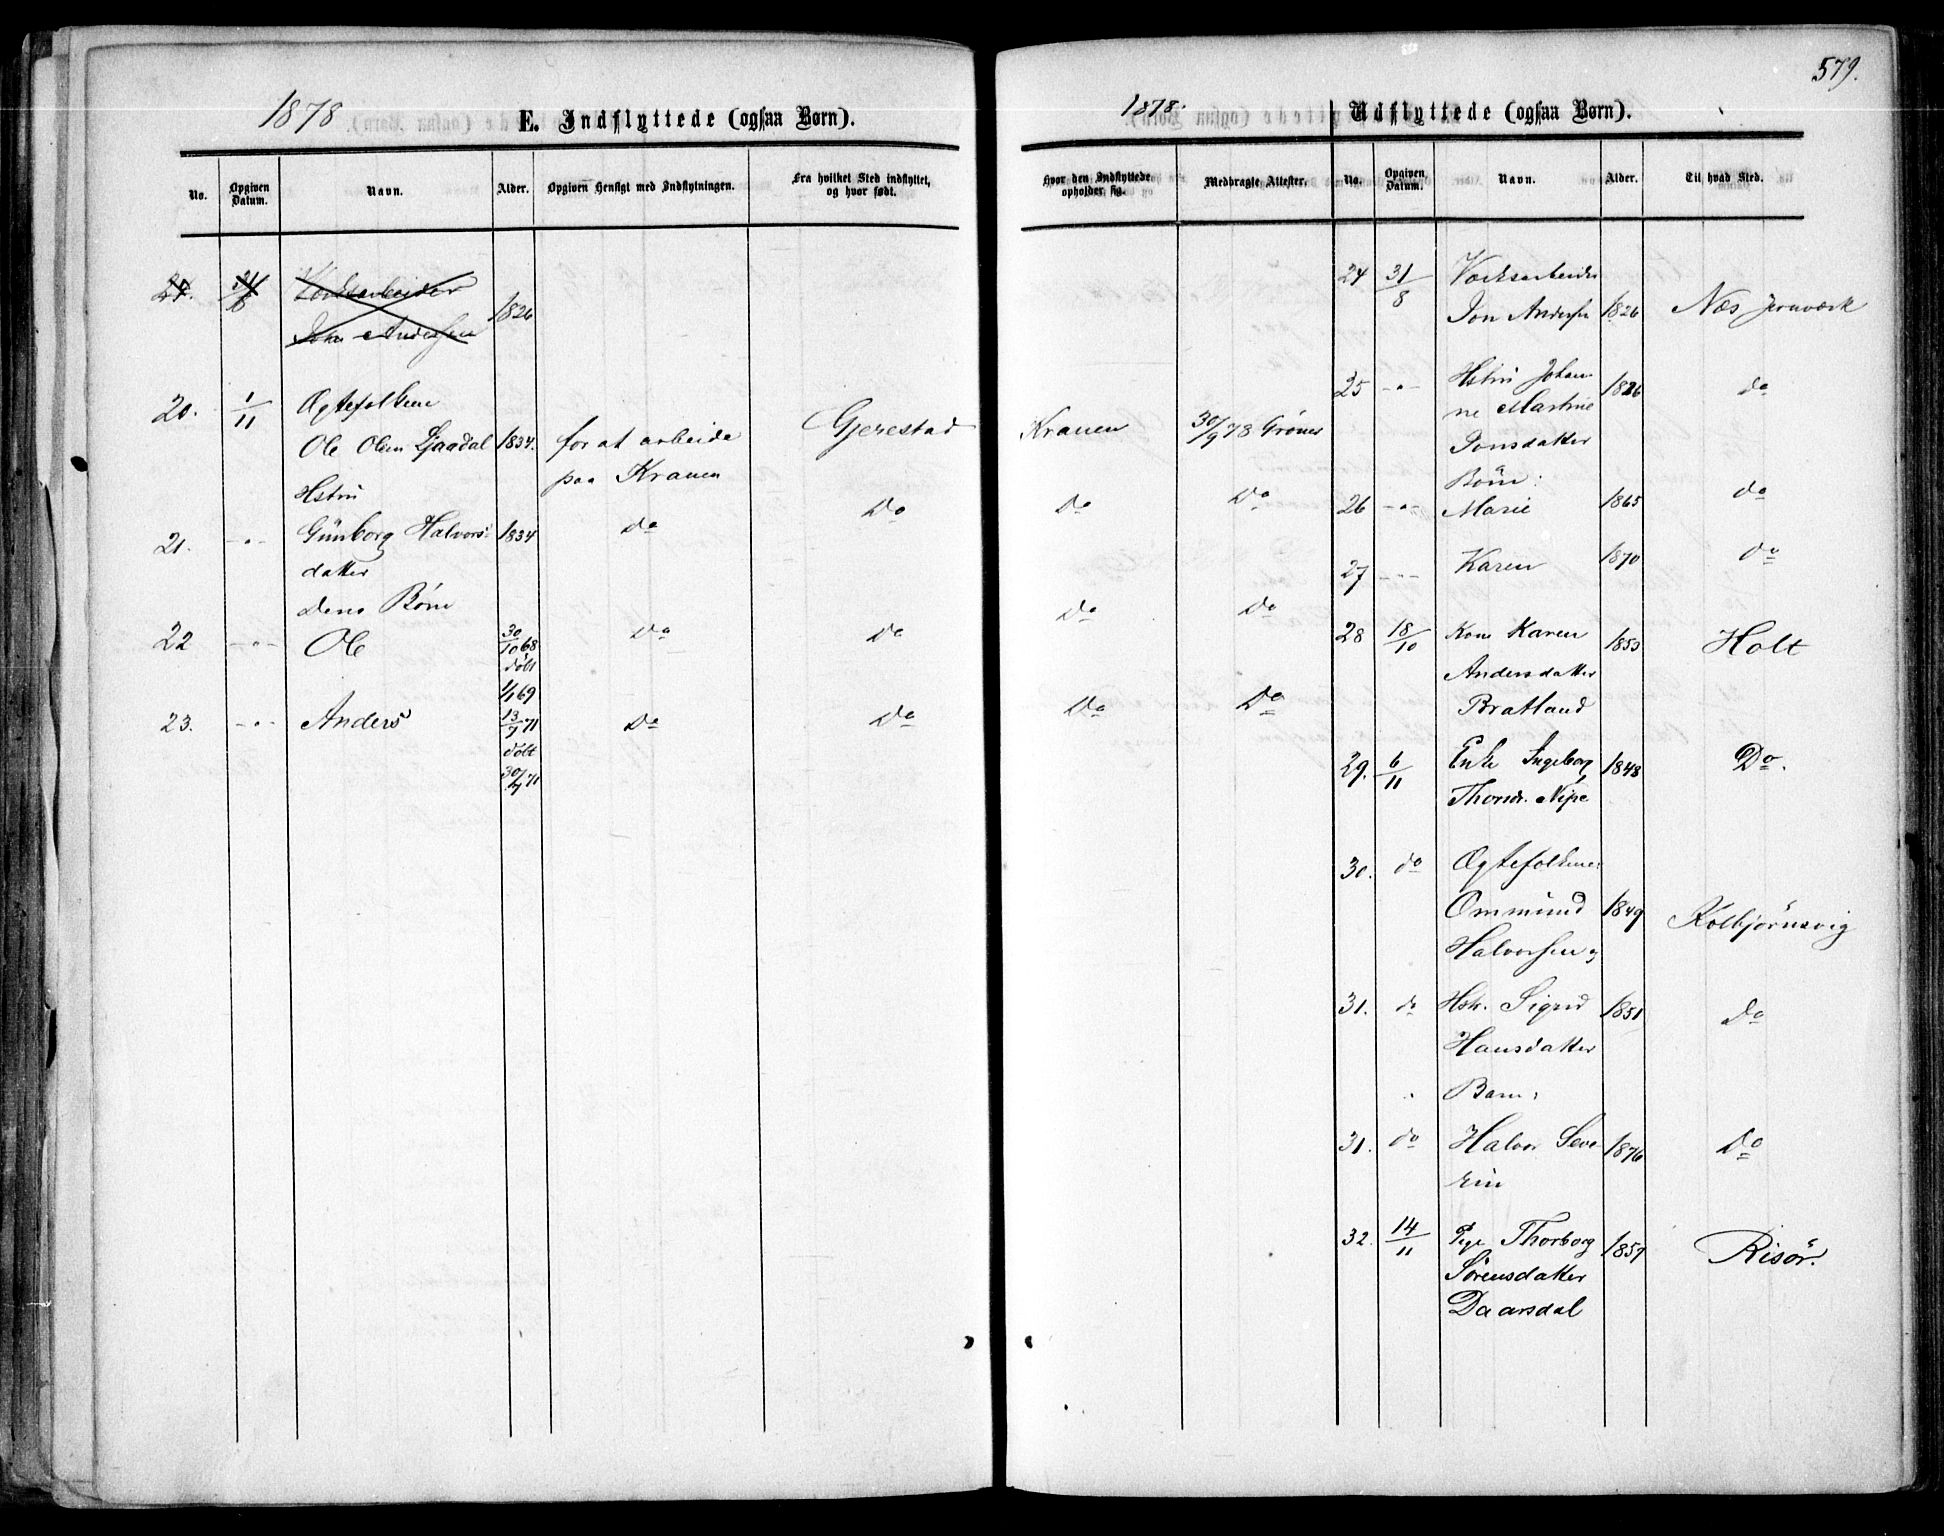 579.
1878
E. Indflyttede (ogsaa Børn).
1878.
Udflyttede (ogsaa Børn).
No.
Opgiven Datum.
Navn.
Alder.
Opgiven Hensigt med Indflytningen.
Fra hvilket Sted indflyttet, og hvor født.
Hvor den Indflyttede opholder sig.
Medbragte Attester.
No.
Opgiven Datum.
Navn.
Alder.
Til hvad Sted.
24. 31/8 Værksarbeider
Jon Andersen 1826
20. 1/11 Ægtefolkene
Ole Olsen Ljaadal 1834. for at arbeide Gjerestad Kranen 30/9 78 Grøner
Hstru paa Kranen
21. -"- Günborg Halvors- 1834 Do Do Do Do
datter
Deres Börn
22 -"- Ole 30/10 68 Do Do Do Do
døbt
1/1 69
23. -"- Anders 13/7 71 Do Do Do Do
døbt
30/7 71
24 31/8 Værksarbeider
Jon Andersen 1826 Næs Jernværk
25 -"- Hstru Johan- 1826 do
ne Martine
Jonsdatter
Börn:
26 -"- Marie 1865 do
27 -"- Karen 1870 do
28 18/10 Kone Karen 1853 Holt
Andersdatter
Bratland
29. 6/11 Enke Ingeborg 1848 Do.
Thorsdr. Nipe
30. do Ægtefolkene:
Ommund 1849 Kolbjörnsvig
Halvorsen og
31. do Hstr. Sigrid 1851 Do
Hansdatter
Barn:
31. do Halvor Seve- 1876 Do
rin
32. 14/11 Pige Thorborg 1857 Risör.
Sörensdatter
Daarsdal